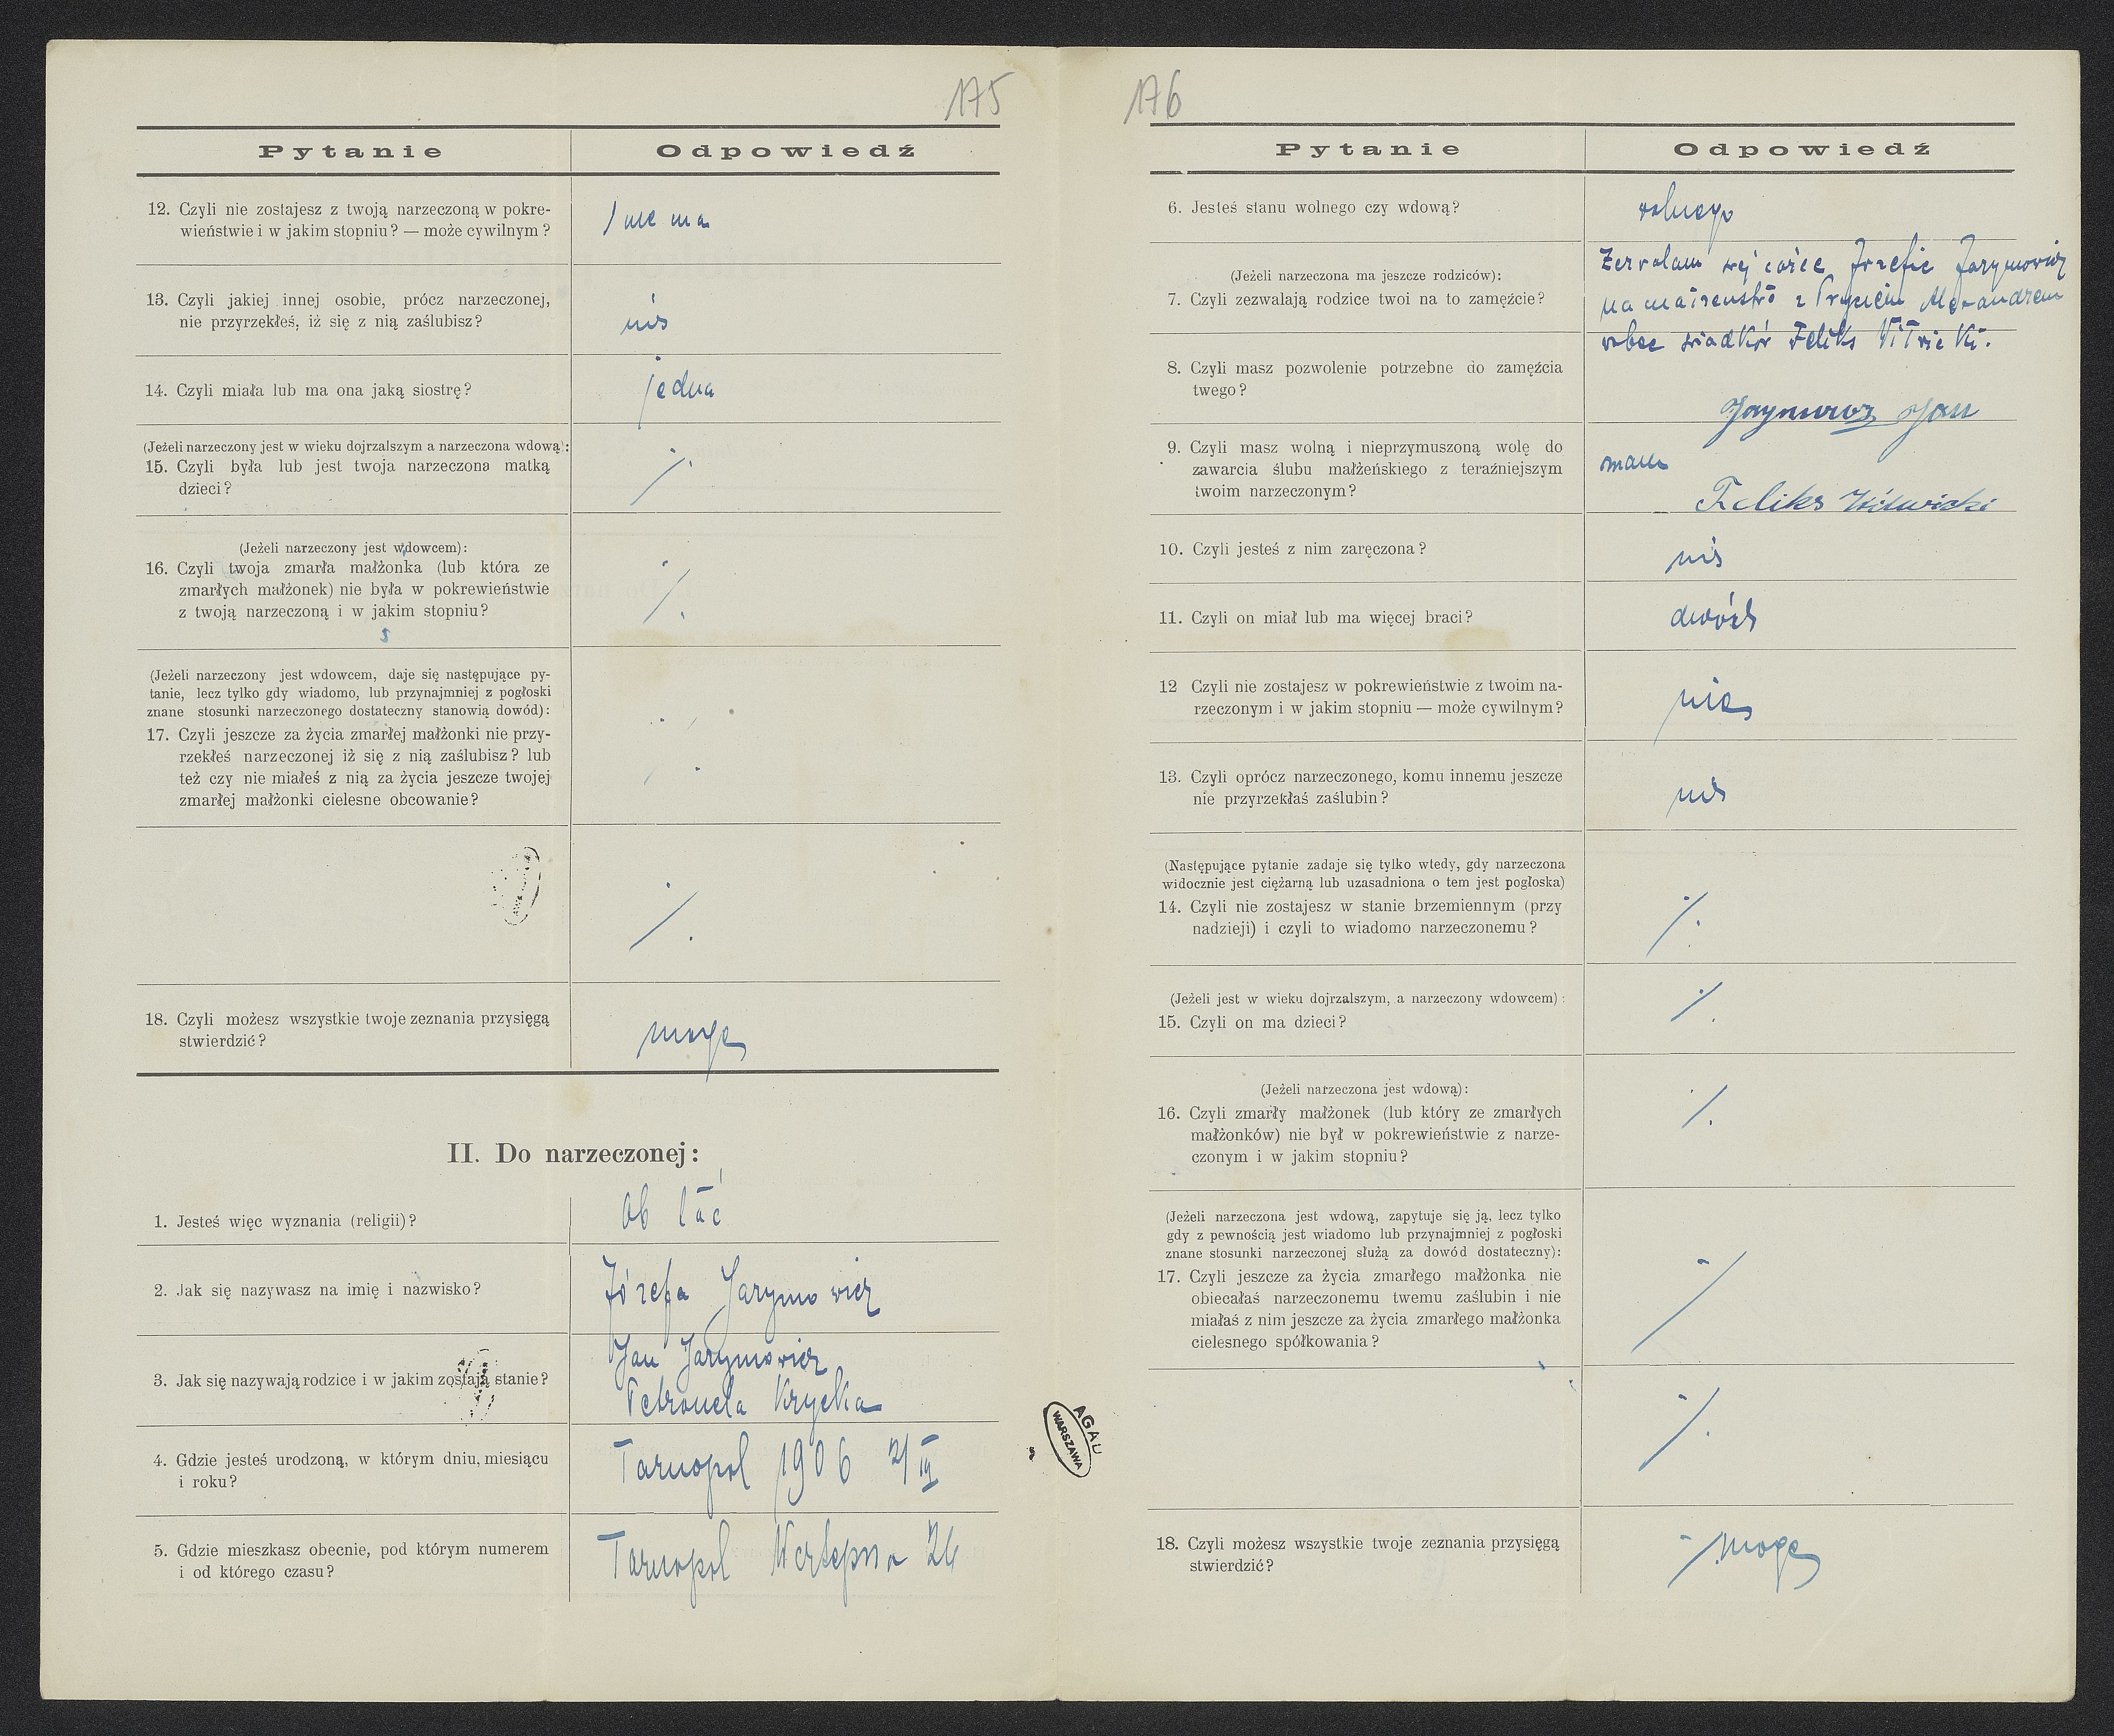 175
Pytanie Odpowiedź
12. Czyli nie zostajesz z twoją narzeczoną w pokre-
wieństwie i w jakim stopniu? — może cywilnym?
nie ma
13. Czyli jakiej innej osobie, prócz narzeczonej,
nie przyrzekłeś, iż się z nią zaślubisz?
nie
14. Czyli miała lub ma ona jaką siostrę?
jedna
(Jeżeli narzeczony jest w wieku dojrzalszym a narzeczona wdową):
15. Czyli była lub jest twoja narzeczona matką
dzieci?
·/.
(Jeżeli narzeczony jest wdowcem):
16. Czyli twoja zmarła małżonka (lub która ze
zmarłych małżonek) nie była w pokrewieństwie
z twoją narzeczoną i w jakim stopniu?
·/.
(Jeżeli narzeczony jest wdowcem, daje się następujące py-
tanie, lecz tylko gdy wiadomo, lub przynajmniej z pogłoski
znane stosunki narzeczonego dostateczny stanowią dowód):
17. Czyli jeszcze za życia zmarłej małżonki nie przy-
rzekłeś narzeczonej iż się z nią zaślubisz? lub
też czy nie miałeś z nią za życia jeszcze twojej
zmarłej małżonki cielesne obcowanie?
·/.
18. Czyli możesz wszystkie twoje zeznania przysięgą
stwierdzić?
mogę
II. Do narzeczonej:
1. Jesteś więc wyznania (religii)?
ob łać
2. Jak się nazywasz na imię i nazwisko?
Józefa Jarymowicz
3. Jak się nazywają rodzice i w jakim zostają stanie?
Jan Jarymowicz
Petronela Krycka
4. Gdzie jesteś urodzoną, w którym dniu, miesiącu
i roku?
Tarnopol 1906 2/III
5. Gdzie mieszkasz obecnie, pod którym numerem
i od którego czasu?
Tarnopol Wertepna 26
AGAD
WARSZAWA
176
Pytanie Odpowiedź
6. Jesteś stanu wolnego czy wdową?
wolnego
(Jeżeli narzeczona ma jeszcze rodziców):
7. Czyli zezwalają rodzice twoi na to zamężcie?
Zezwalam swej córce Józefie Jarymowicz
na małżeństwo z Aleksandrem
wobec świadków Feliks Witwicki.
8. Czyli masz pozwolenie potrzebne do zamężcia
twego?
Jarymowicz Jan
9. Czyli masz wolną i nieprzymuszoną wolę do
zawarcia ślubu małżeńskiego z teraźniejszym
twoim narzeczonym?
mam
Feliks Witwicki
10. Czyli jesteś z nim zaręczona?
nie
11. Czyli on miał lub ma więcej braci?
dwóch
12 Czyli nie zostajesz w pokrewieństwie z twoim na-
rzeczonym i w jakim stopniu — może cywilnym?
nie
13. Czyli oprócz narzeczonego, komu innemu jeszcze
nie przyrzekłaś zaślubin?
nie
(Następujące pytanie zadaje się tylko wtedy, gdy narzeczona
widocznie jest ciężarną lub uzasadniona o tem jest pogłoska)
14. Czyli nie zostajesz w stanie brzemiennym (przy
nadzieji) i czyli to wiadomo narzeczonemu?
·/.
(Jeżeli jest w wieku dojrzalszym, a narzeczony wdowcem):
15. Czyli on ma dzieci?
·/.
(Jeżeli narzeczona jest wdową):
16. Czyli zmarły małżonek (lub który ze zmarłych
małżonków) nie był w pokrewieństwie z narze-
czonym i w jakim stopniu?
·/.
(Jeżeli narzeczona jest wdową, zapytuje się ją, lecz tylko
gdy z pewnością jest wiadomo lub przynajmniej z pogłoski
znane stosunki narzeczonej służą za dowód dostateczny):
17. Czyli jeszcze za życia zmarłego małżonka nie
obiecałaś narzeczonemu twemu zaślubin i nie
miałaś z nim jeszcze za życia zmarłego małżonka
cielesnego spółkowania?
·/.
18. Czyli możesz wszystkie twoje zeznania przysięgą
stwierdzić?
mogę